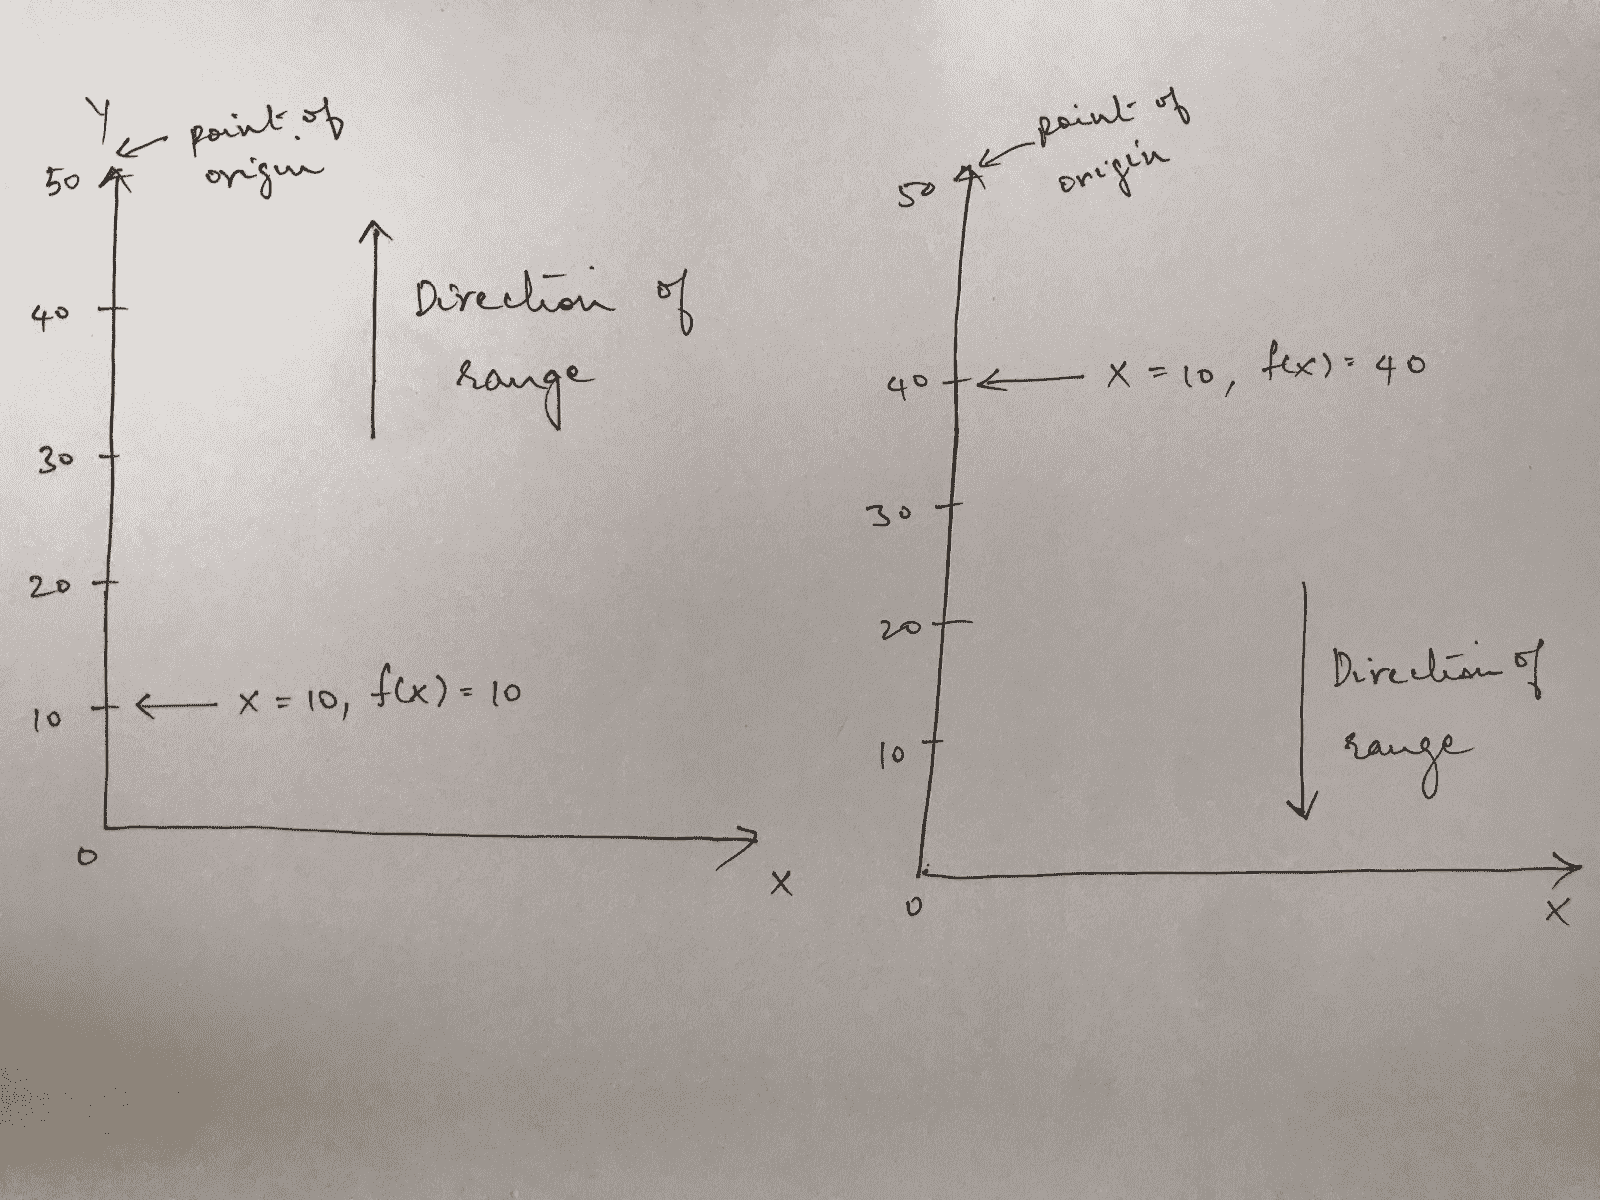 Y
point of
origin
50
Direction of
range
40
30
20
10
x = 10, f(x) = 10
0
X
point of
origin
50
40
x = 10, f(x) = 40
30
20
Direction of
range
10
0
X